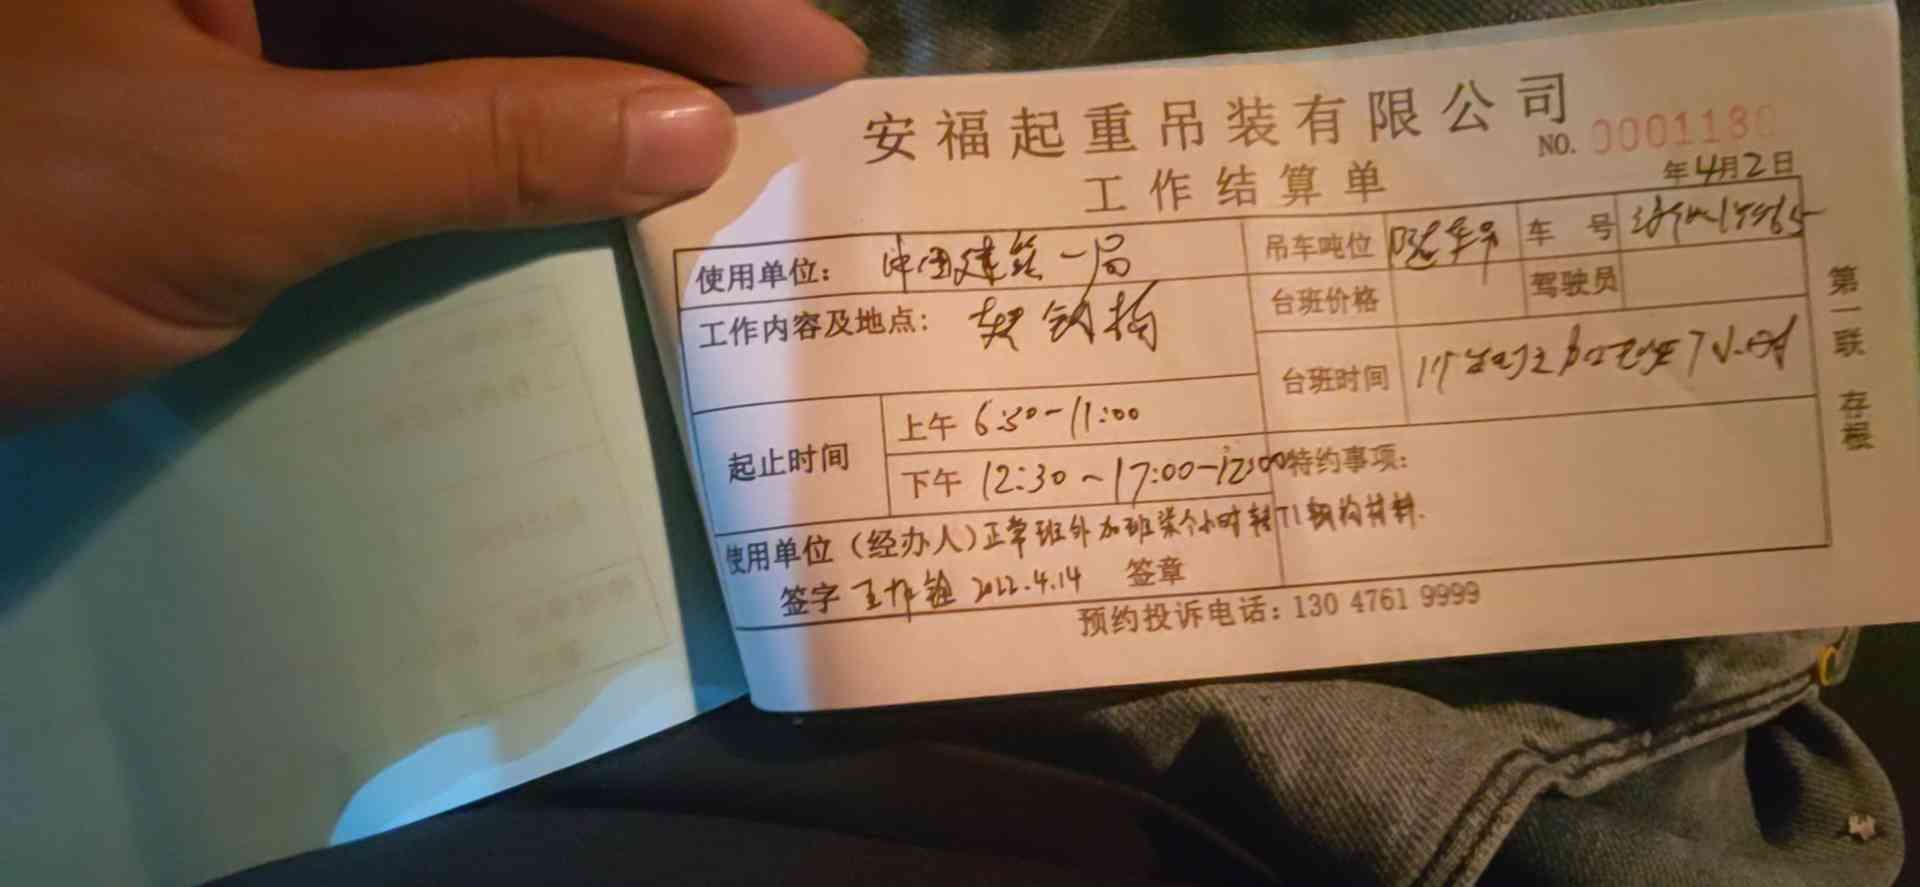 安福起重吊装有限公司
NO. 000118
工作结算单
年4月2日
使用单位： 中国建筑一局
吊车吨位 随车吊 车号
台班价格 驾驶员
工作内容及地点： 转钢构
台班时间 小时
起止时间
上午 6:30-11:00
下午 12:30~17:00-12:00
特约事项：
使用单位（经办人）正常班外加班柒个小时转T1钢构材料.
签字 2022.4.14 签章
预约投诉电话：130 4761 9999
第一联 存根